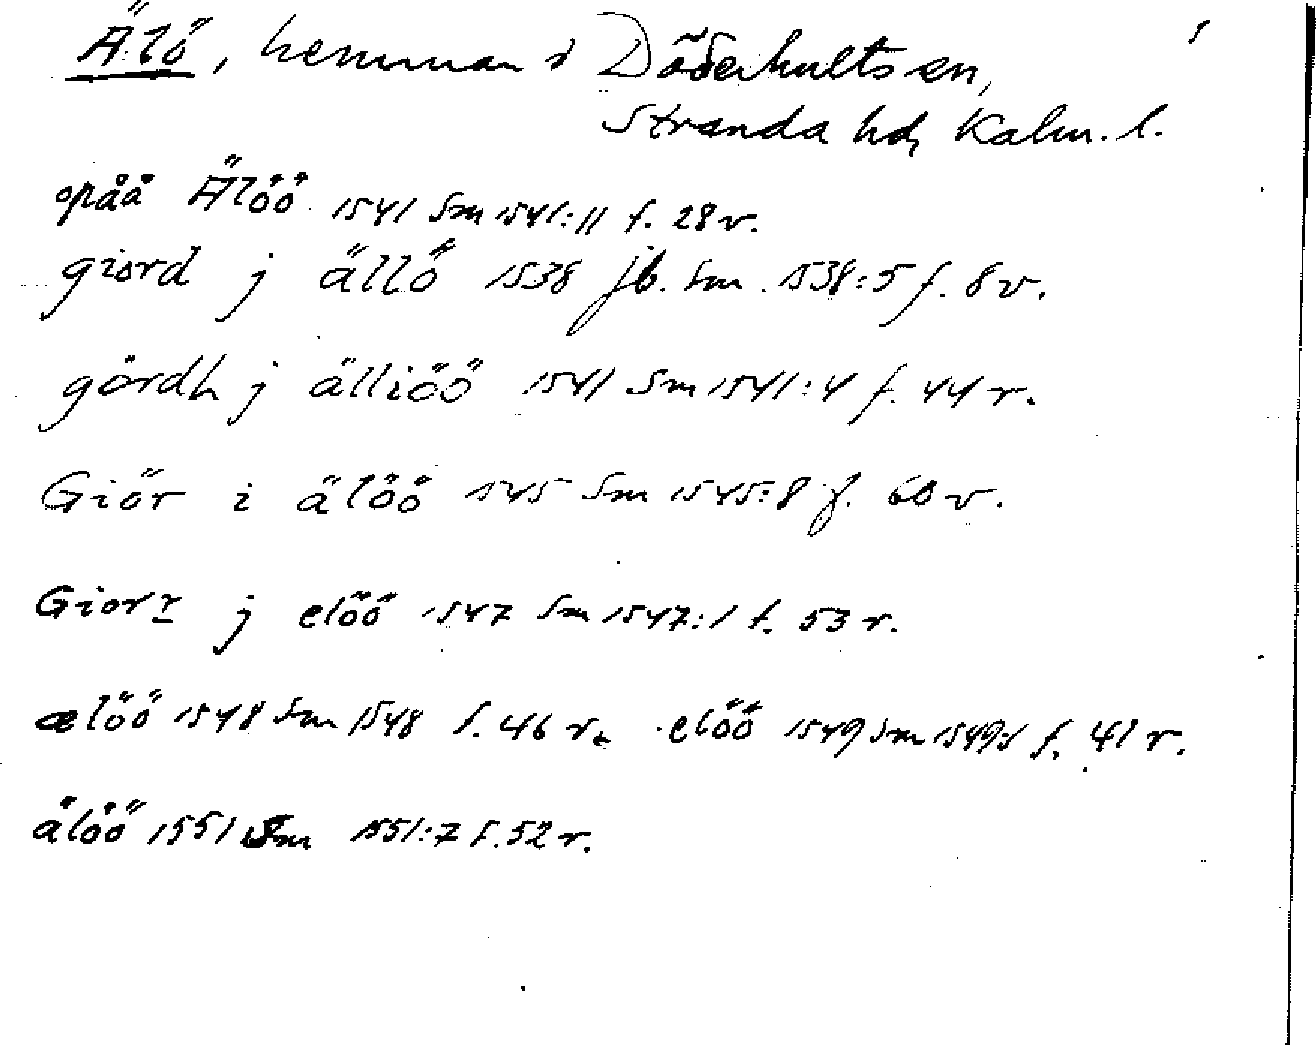 Älö, hemman i Döderhults sn,
Stranda hd, Kalm. l.
opåå Älöö 1541 Sm 1541:11 f. 28 v.
giord j ällö 1538 jb. Sm 1538:5 f. 8 v.
gördh j älliöö 1541 Sm 1541:4 f. 44 r.
Giör i älöö 1545 Sm 1545:8 f. 60 v.
Giorr j elöö 1547 Sm 1547:1 f. 53 r.
ælöö 1548 Sm 1548 f. 46 r. elöö 1549 Sm 1549:1 f. 41 r.
älöö 1551 Sm 1551:7 f. 52 r.